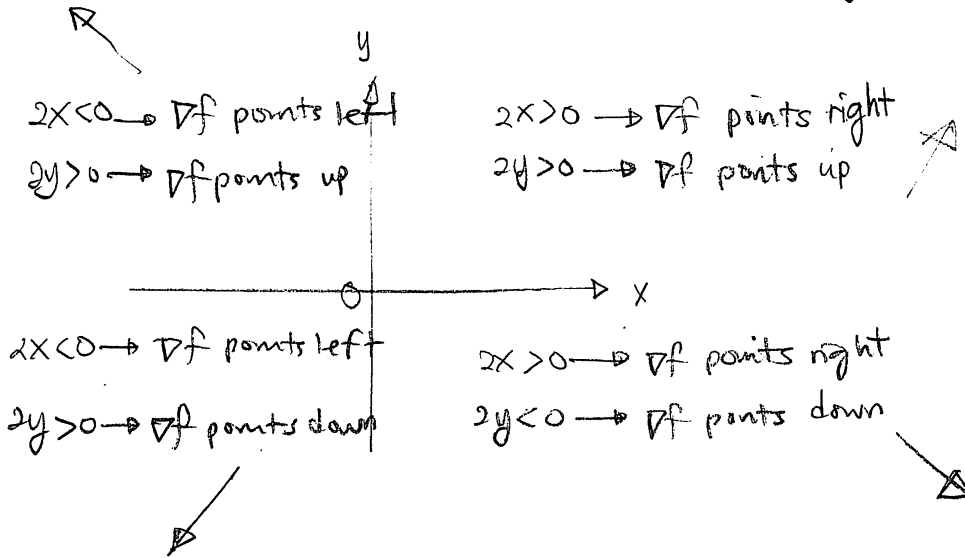 y
2x<0 → ∇f points left
2y>0 → ∇f points up
2x>0 → ∇f points right
2y>0 → ∇f points up
0
x
2x<0 → ∇f points left
2y>0 → ∇f points down
2x>0 → ∇f points right
2y<0 → ∇f points down